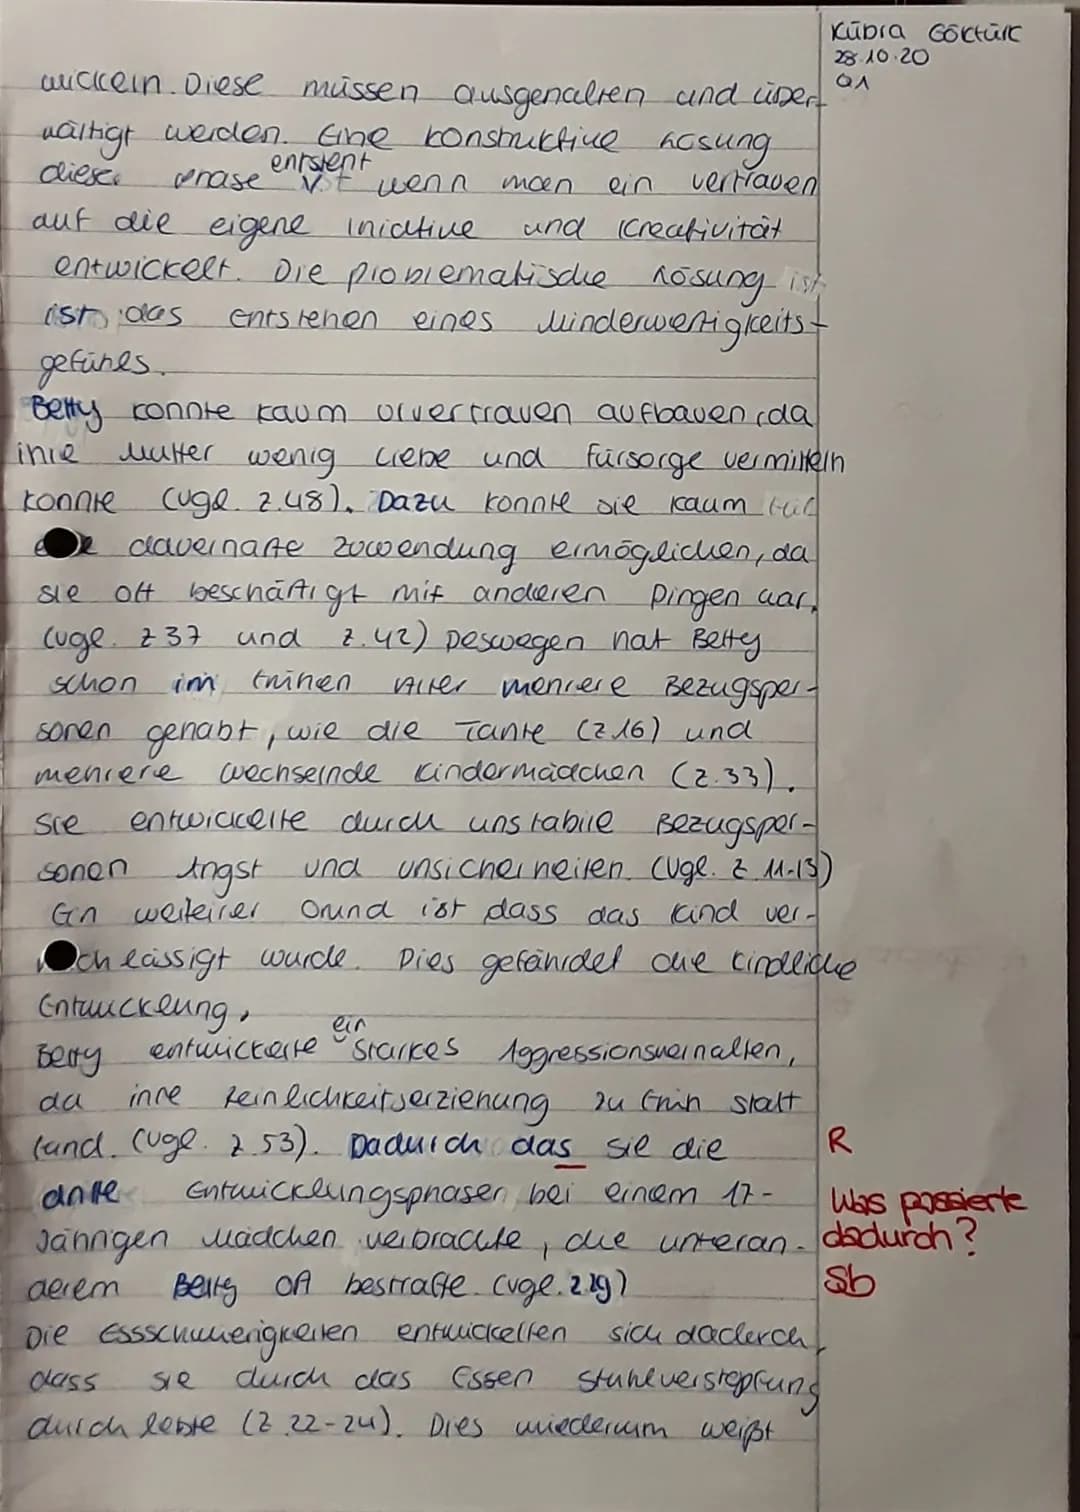 Kübra Göktürk
28.10.20
Q1
wickeln. Diese müssen ausgehalten und über-
wältigt werden. Eine konstruktive Lösung
dieser Phase entsteht wenn man ein vertrauen
auf die eigene Iniative und Kreativität
entwickelt. Die problematische Lösung ist
ist das Entstehen eines Minderwertigkeits-
gefühles.
Betty konnte kaum Urvertrauen aufbauen, da
ihre Mutter wenig Liebe und Fürsorge vermitteln
konnte (vgl. Z.48). Dazu konnte sie kaum
dauerhafte Zuwendung ermöglichen, da
sie oft beschäftigt mit anderen Dingen war.
(vgl. Z 37 und Z.42) Deswegen hat Betty
schon im frühen Alter mehrere Bezugsper-
sonen gehabt, wie die Tante (Z.16) und
mehrere wechselnde Kindermädchen (Z.33).
Sie entwickelte durch unstabile Bezugsper-
sonen Angst und Unsicherheiten. (Vgl. Z 11-13)
Ein weiterer Grund ist dass das Kind ver-
chlässigt wurde. Dies gefährdet die kindliche
Entwicklung.
Betty entwickelte ein starkes Aggressionsverhalten,
da ihre Reinlichkeitserziehung zu früh statt
fand. (vgl. Z 53). Dadurch das sie die
R
dritte Entwicklungsphasen bei einem 17-
Was passierte
jährigen Mädchen verbrachte, die unteran-
dadurch?
derem Betty oft bestrafte. (vgl. Z.29)
Sb
Die Essschwierigkeiten entwickelten sich daderch,
dass sie durch das Essen Stuhlverstopfung
durch lebte (Z.22-24). Dies wiederum weißt